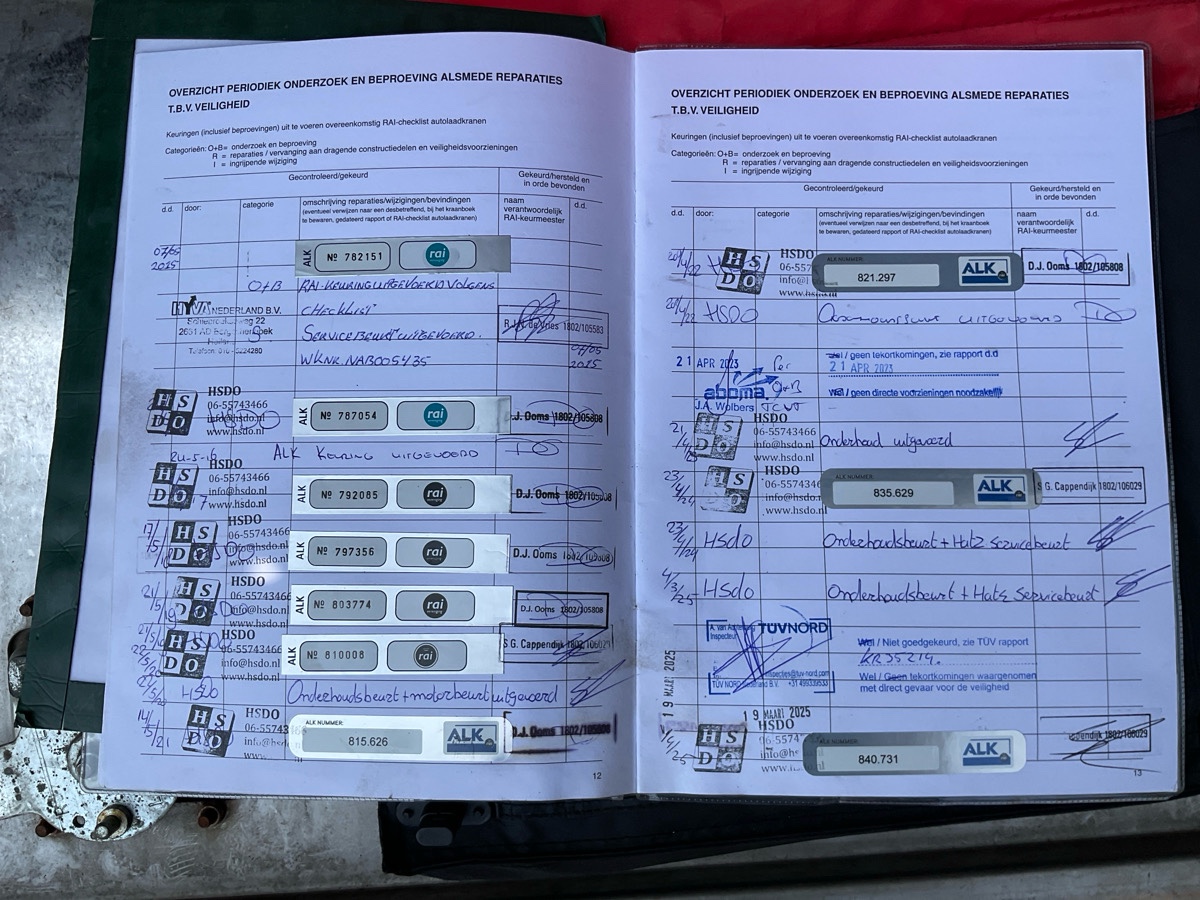 OVERZICHT PERIODIEK ONDERZOEK EN BEPROEVING ALSMEDE REPARATIES
T.B.V. VEILIGHEID
Keuringen (inclusief beproevingen) uit te voeren overeenkomstig RAI-checklist autolaadkranen
Categorieën: O+B= onderzoek en beproeving
R = reparaties / vervanging aan dragende constructiedelen en veiligheidsvoorzieningen
I = ingrijpende wijziging
Gecontroleerd/gekeurd
Gekeurd/hersteld en
in orde bevonden
d.d. door: categorie omschrijving reparaties/wijzigingen/bevindingen naam d.d.
(eventueel verwijzen naar een desbetreffend, bij het kraanboek verantwoordelijk
te bewaren, gedateerd rapport of RAI-checklist autolaadkranen) RAI-keurmeester
07/05
2015
ALK Nº 782151 rai
O+B RAI-KEURING UITGEVOERD VOLGENS
HYVA NEDERLAND B.V. CHECKLIST
R.J. de Vries 1802/105583
SERVICEBEURT UITGEVOERD.
WKNR. NAB005435 07/05
2015
HSDO
06-55743466
info@hsdo.nl
www.hsdo.nl
ALK Nº 787054 rai
D.J. Ooms 1802/105808
24-5-16 ALK KEURING UITGEVOERD
HSDO
06-55743466
info@hsdo.nl
www.hsdo.nl
ALK Nº 792085 rai
D.J. Ooms 1802/105808
17/5
HSDO
06-55743466
info@hsdo.nl
www.hsdo.nl
ALK Nº 797356 rai
D.J. Ooms 1802/105808
21/5
HSDO
06-55743466
info@hsdo.nl
www.hsdo.nl
ALK Nº 803774 rai
D.J. Ooms 1802/105808
HSDO
06-55743466
info@hsdo.nl
www.hsdo.nl
ALK Nº 810008 rai
S G. Cappendijk 1802/106029
HSDO Onderhoudsbeurt + motorbeurt uitgevoerd
14/5/21
HSDO
ALK NUMMER:
815.626 ALK
D.J. Ooms 1802/105808
12
OVERZICHT PERIODIEK ONDERZOEK EN BEPROEVING ALSMEDE REPARATIES
T.B.V. VEILIGHEID
Keuringen (inclusief beproevingen) uit te voeren overeenkomstig RAI-checklist autolaadkranen
Categorieën: O+B= onderzoek en beproeving
R = reparaties / vervanging aan dragende constructiedelen en veiligheidsvoorzieningen
I = ingrijpende wijziging
Gecontroleerd/gekeurd
Gekeurd/hersteld en
in orde bevonden
d.d. door: categorie omschrijving reparaties/wijzigingen/bevindingen naam d.d.
(eventueel verwijzen naar een desbetreffend, bij het kraanboek verantwoordelijk
te bewaren, gedateerd rapport of RAI-checklist autolaadkranen) RAI-keurmeester
20/4/22
HSDO
ALK NUMMER:
821.297 ALK
D.J. Ooms 1802/105808
20/4/22 HSDO
21 APR 2023
Wel / geen tekortkomingen, zie rapport d.d
21 APR 2023
aboma O+B
Wel / geen directe voorzieningen noodzakelijk
J.A. Wolbers
HSDO
06-55743466
info@hsdo.nl
www.hsdo.nl
Onderhoud uitgevoerd
23/4/24
HSDO
ALK NUMMER:
835.629 ALK
S G. Cappendijk 1802/106029
23/4/24 Hsdo Onderhoudsbeurt + Hatz Servicebeurt
4/3/25 Hsdo Onderhoudsbeurt + Hatz Servicebeurt
Inspecteur TÜVNORD
Wel / Niet goedgekeurd, zie TÜV rapport
Wel / Geen tekortkomingen waargenomen
met direct gevaar voor de veiligheid
19 MAART 2025
19 MAART 2025
HSDO
ALK NUMMER:
840.731 ALK
13